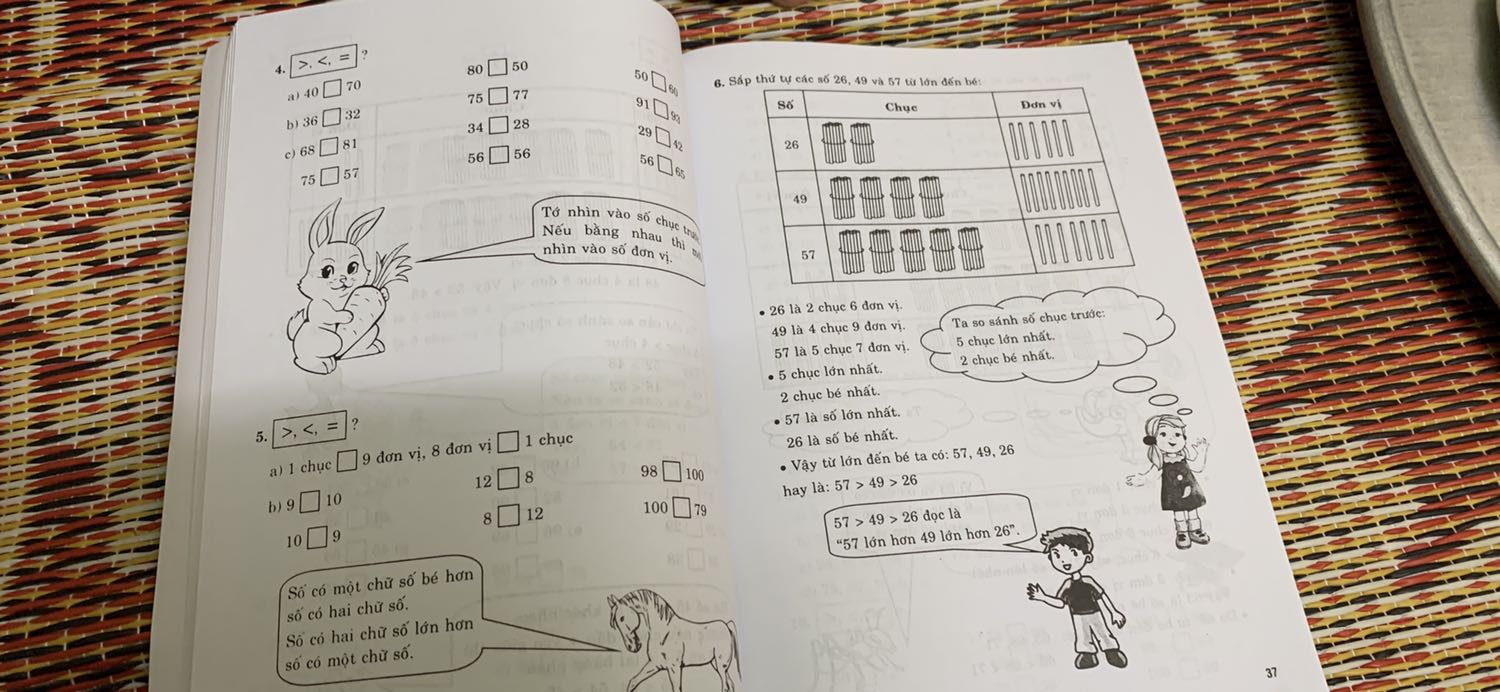 4. >, <, = ?
a) 40 □ 70 80 □ 50 50 □ 60
b) 36 □ 32 75 □ 77 91 □ 93
c) 68 □ 81 34 □ 28 29 □ 42
75 □ 57 56 □ 56 56 □ 65
Tớ nhìn vào số chục
Nếu bằng nhau thì
nhìn vào số đơn vị.
5. >, <, = ?
a) 1 chục □ 9 đơn vị, 8 đơn vị □ 1 chục
b) 9 □ 10 12 □ 8 98 □ 100
10 □ 9 8 □ 12 100 □ 79
Số có một chữ số bé hơn
số có hai chữ số.
Số có hai chữ số lớn hơn
số có một chữ số.
6. Sắp thứ tự các số 26, 49 và 57 từ lớn đến bé:
Số Chục Đơn vị
26
49
57
• 26 là 2 chục 6 đơn vị.
49 là 4 chục 9 đơn vị.
57 là 5 chục 7 đơn vị.
• 5 chục lớn nhất.
2 chục bé nhất.
• 57 là số lớn nhất.
26 là số bé nhất.
• Vậy từ lớn đến bé ta có: 57, 49, 26
hay là: 57 > 49 > 26
Ta so sánh số chục trước:
5 chục lớn nhất.
2 chục bé nhất.
57 > 49 > 26 đọc là
“57 lớn hơn 49 lớn hơn 26”.
37